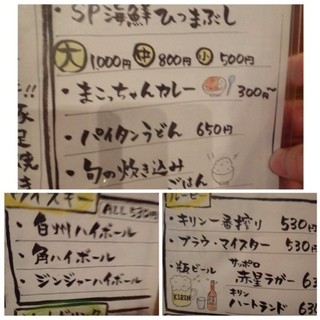 ・SP海鮮ひつまぶし
大 1000円 中 800円 小 500円
・まこっちゃんカレー 300円〜
・パイタンうどん 650円
・旬の炊き込み
ごはん
!!
焼き
ALL530円
・白州ハイボール
・角ハイボール
・ジンジャーハイボール
・キリン一番搾り 530円
・ブラウ・マイスター 530円
・瓶ビール サッポロ
赤星ラガー 63
KIRIN
キリン
ハートランド 63